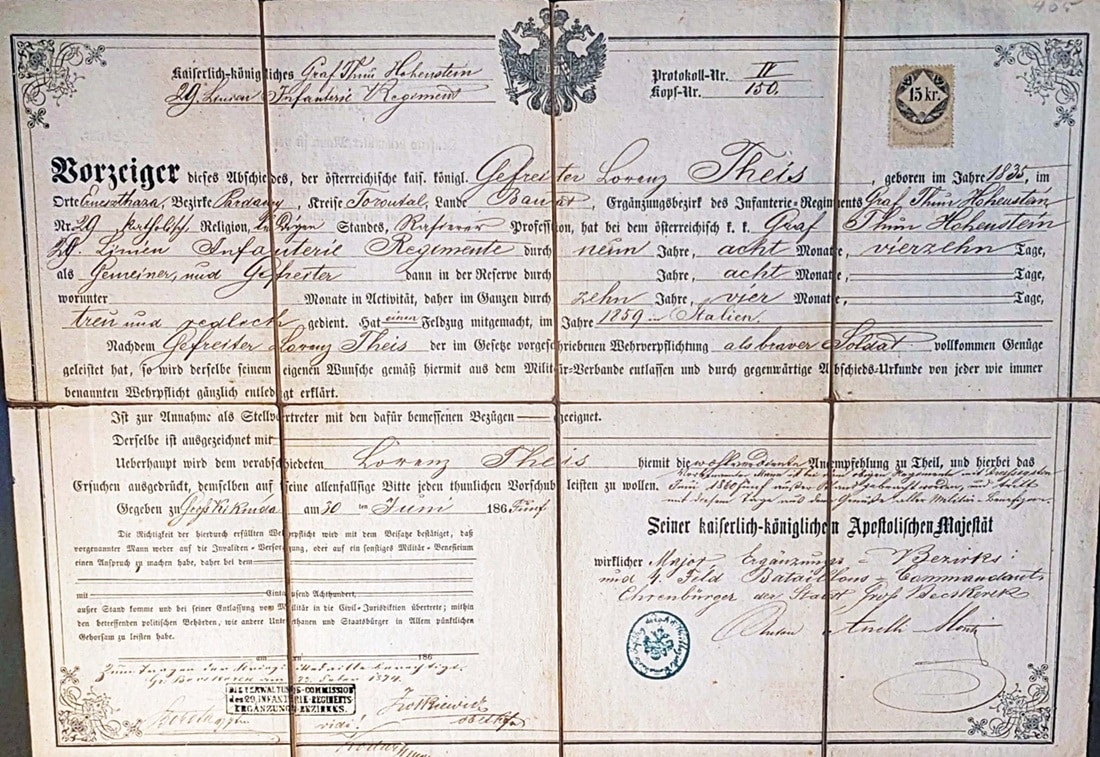 405
Kaiserlich-königliches Graf Thun Hohenstein
29 Linien Infanterie Regiment
Protokoll-Nr. IV
Kopf-Nr. 150.
15 kr.
Vorzeiger dieses Abschiedes, der österreichische kais. königl. Gefreiter Lorenz Theis, geboren im Jahre 1835, im
Orte, Bezirke Pardany, Kreise Torontal, Lande Banat, Ergänzungsbezirk des Infanterie-Regiments Graf Thun Hohenstein
Nr. 29 katholisch. Religion, Standes, Profession, hat bei dem österreichisch k. k. Graf Thun Hohenstein
29. Linien Infanterie Regimente durch neun Jahre, acht Monate, vierzehn Tage,
als Gemeiner, und Gefreiter dann in der Reserve durch Jahre, acht Monate, Tage,
worunter Monate in Activität, daher im Ganzen durch zehn Jahre, vier Monate, Tage,
treu und redlich gedient. Hat einen Feldzug mitgemacht, im Jahre 1859 in Italien.
Nachdem Gefreiter Lorenz Theis der im Gesetze vorgeschriebenen Wehrverpflichtung als braver Soldat vollkommen Genüge
geleistet hat, so wird derselbe seinem eigenen Wunsche gemäß hiermit aus dem Militär-Verbande entlassen und durch gegenwärtige Abschieds-Urkunde von jeder wie immer
benannten Wehrpflicht gänzlich entledigt erklärt.
Ist zur Annahme als Stellvertreter mit den dafür bemessenen Bezügen — geeignet.
Derselbe ist ausgezeichnet mit
Ueberhaupt wird dem verabschiedeten Lorenz Theis hiemit die wohlverdiente Anempfehlung zu Theil, und hierbei das
Ersuchen ausgedrückt, demselben auf seine allenfallsige Bitte jeden thunlichen Vorschub leisten zu wollen.
Gegeben zu am 30 ten Juni 186 Fünf
Seiner kaiserlich-königlichen Apostolischen Majestät
Die Richtigkeit der hierdurch erfüllten Wehrpflicht wird mit dem Beisatze bestätiget, daß
vorgenannter Mann weder auf die Invaliden-Versorgung, oder auf ein sonstiges Militär-Beneficium
einen Anspruch zu machen habe, daher bei dem
mit Eintausend Achthundert,
außer Stand komme und bei seiner Entlassung vom Militär in die Civil-Jurisdiktion übertrete; mithin
den betreffenden politischen Behörden, wie andere Unterthanen und Staatsbürger in Allem pünktlichen
Gehorsam zu leisten habe.
am 186
wirklicher Major, Ergänzungs-Bezirks
und 4. Feld Bataillons-Commandant
Ehrenbürger der Stadt Groß Becskerek
Zum Tragen der Kriegs-Medaille
1874.
DIE VERWALTUNGS-COMMISSION
des 29. INFANTERIE-REGIMENTS
ERGÄNZUNGS-BEZIRKES.